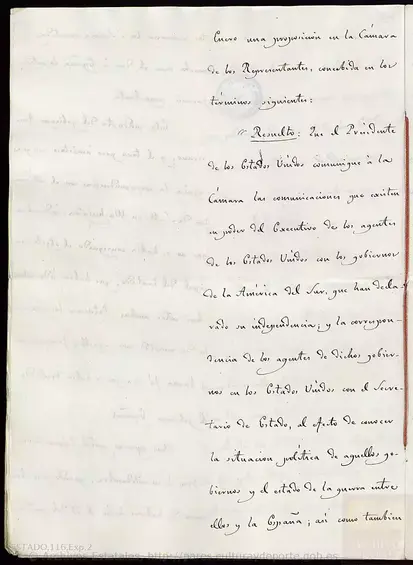 Enero una proposicion en la Cámara
de los Representantes, concebida en los
términos siguientes:
" Resuelto: Que el Presidente
de los Estados Unidos comunique á la
Cámara las comunicaciones que existen
en poder del Executivo de los agentes
de los Estados Unidos con los gobiernos
de la América del Sur, que han decla-
rado su independencia; y la correspon-
dencia de los agentes de dichos gobier-
nos en los Estados Unidos con el Secre-
tario de Estado, al efecto de conocer
la situacion política de aquellos go-
biernos y el estado de la guerra entre
ellos y la España; asi como tambien
ESTADO,116,Exp.2